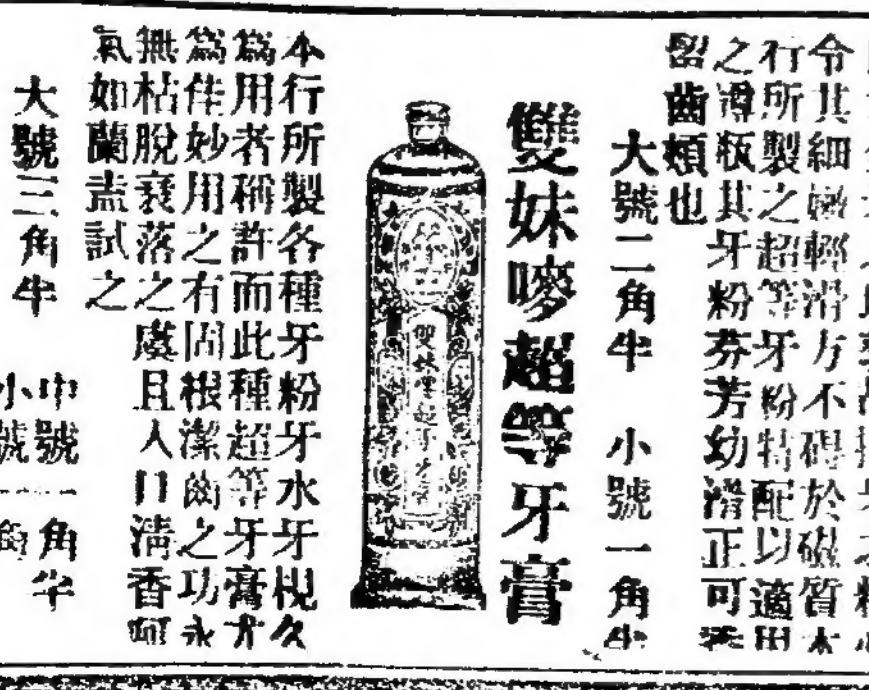 令其細嫩輕滑方不碍於磁質本
行所製之超等牙粉特配以適用
之樽瓶其牙粉芬芳幼滑正可香
留齒頰也
大號二角半 小號一角半
雙妹嘜超等牙膏
本行所製各種牙粉牙水牙枧久
為用者稱許而此種超等牙膏尤
為佳妙用之有固根潔齒之功永
無枯脫衰落之虞且入口清香呵
氣如蘭盍試之
大號三角半 中號一角半
小號一角